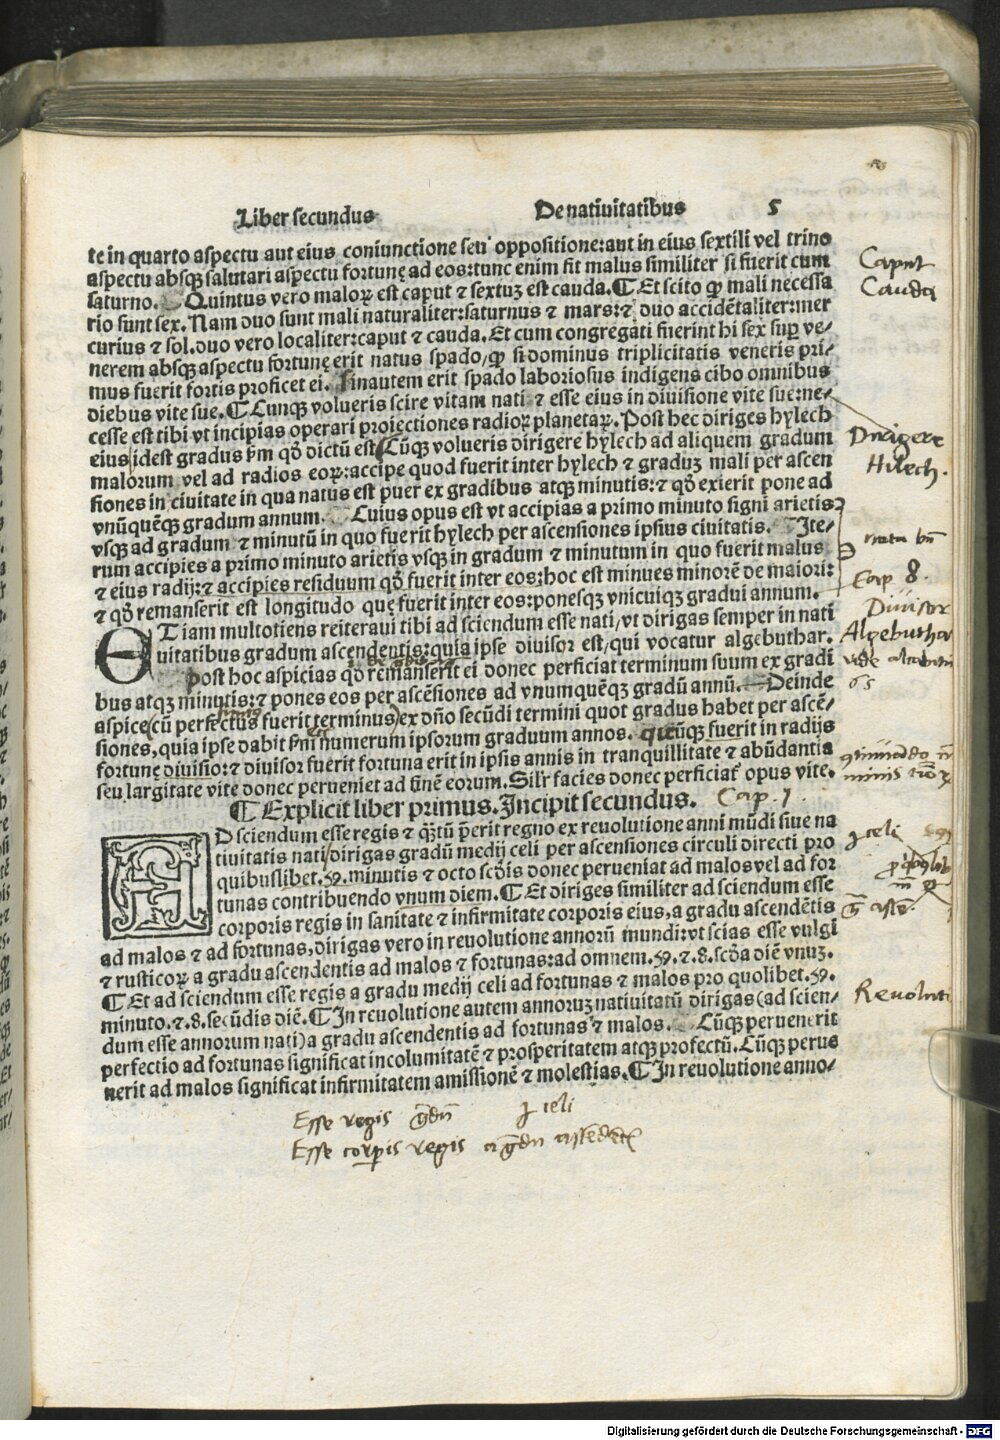 Liber secundus De natiuitatibus 5
te in quarto aspectu aut eius coniunctione seu oppositione:aut in eius sextili vel trino
aspectu absqꝫ salutari aspectu fortunę ad eos:tunc enim fit malus similiter si fuerit cum
saturno. Quintus vero maloꝝ est caput ⁊ sextuꝫ est cauda.¶ Et scito ꝙ mali necessa
rio sunt sex. Nam duo sunt mali naturaliter:saturnus ⁊ mars:⁊ duo accidētaliter:mer
curius ⁊ sol.duo vero localiter:caput ⁊ cauda. Et cum congregati fuerint hi sex suꝑ ve/
nerem absqꝫ aspectu fortunę erit natus spado/ꝙ si dominus triplicitatis veneris pri/
mus fuerit fortis proficet ei. Sinautem erit spado laboriosus indigens cibo omnibus
diebus vite sue.¶ Cunqꝫ volueris scire vitam nati ⁊ esse eius in diuisione vite sue:ne/
cesse est tibi vt incipias operari proiectiones radioꝝ planetaꝝ. Post hec diriges hylech
eius idest gradus ẜm qđ dictū est Cūqꝫ volueris dirigere hylech ad aliquem gradum
malorum vel ad radios eoꝝ:accipe quod fuerit inter hylech ⁊ graduꝫ mali per ascen
siones in ciuitate in qua natus est puer ex gradibus atqꝫ minutis:⁊ qđ exierit pone ad
vnūquēqꝫ gradum annum. Cuius opus est vt accipias a primo minuto signi arietis
vsqꝫ ad gradum ⁊ minutū in quo fuerit hylech per ascensiones ipsius ciuitatis. Ite/
rum accipies a primo minuto arietis vsqꝫ in gradum ⁊ minutum in quo fuerit malus
⁊ eius radij:⁊ accipies residuum qđ fuerit inter eos:hoc est minues minorē de maiori:
⁊ qđ remanserit est longitudo quę fuerit inter eos:ponesqꝫ vnicuiqꝫ gradui annum.
ETiam multotiens reiteraui tibi ad sciendum esse nati/vt dirigas semper in nati
uitatibus gradum ascendentis:quia ipse diuisor est/qui vocatur algebuthar.
post hoc aspicias qđ remanserit ei donec perficiat terminum suum ex gradi
bus atqꝫ minutis:⁊ pones eos per ascēsiones ad vnumquēqꝫ gradū annū. Deinde
aspice cū perfectus fuerit terminus ex dño secūdi termini quot gradus habet per ascē/
siones,quia ipse dabit ẜm numerum ipsorum graduum annos. qūqꝫ fuerit in radijs
fortunę diuisio:⁊ diuisor fuerit fortuna erit in ipsis annis in tranquillitate ⁊ abūdantia
seu largitate vite donec perueniet ad finē eorum. Silr facies donec perficiat opus vite.
¶ Explicit liber primus.Incipit secundus. Cap. 1
AD sciendum esse regis ⁊ q̄ꝫtū ꝑerit regno ex reuolutione anni mūdi siue na
tiuitatis nati/dirigas gradū medij celi per ascensiones circuli directi pro
quibuslibet.59. minutis ⁊ octo scđis donec perueniat ad malos vel ad for
tunas contribuendo vnum diem.¶ Et diriges similiter ad sciendum esse
corporis regis in sanitate ⁊ infirmitate corporis eius,a gradu ascendētis
ad malos ⁊ ad fortunas,dirigas vero in reuolutione annorū mundi:vt scias esse vulgi
⁊ rusticoꝝ a gradu ascendentis ad malos ⁊ fortunas:ad omnem.59.⁊.8.scđa diē vnuꝫ.
¶ Et ad sciendum esse regis a gradu medij celi ad fortunas ⁊ malos pro quolibet.59.
minuto.⁊.8.secūdis diē.¶ In reuolutione autem annoruꝫ natiuitatū dirigas (ad scien/
dum esse annorum nati) a gradu ascendentis ad fortunas ⁊ malos. Cūqꝫ peruenerit
perfectio ad fortunas significat incolumitatē ⁊ prosperitatem atqꝫ profectū.Cūqꝫ perue
nerit ad malos significat infirmitatem amissionē ⁊ molestias.¶ In reuolutione anno/
Caput
Cauda
Dirigere
Hilech.
Cap. 8.
Diuisor
Algebuthar
65
celi
Reuoluti
Esse regis celi
Esse corporis regis
Digitalisierung gefördert durch die Deutsche Forschungsgemeinschaft - DFG